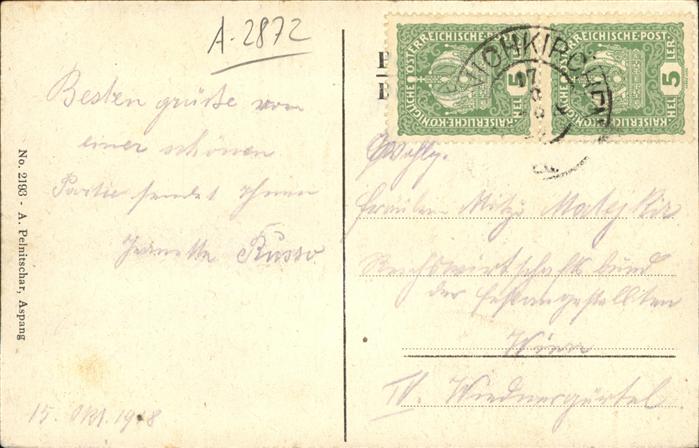 A. 2872
Besten grüße von
einer schönen
Partie sendet Ihnen
Jeanette Russo
15. Okt. 1918
No. 2193 - A. Pelnitschar, Aspang
KAISERLICHE KÖNIGLICHE ÖSTERREICHISCHE POST
5 HELLER
KAISERLICHE KÖNIGLICHE ÖSTERREICHISCHE POST
5 HELLER
Fräulein Mitzi Matejka
Reichswirtschaftsbund
der Festangestellten
Wien
IV. Wiednergürtel